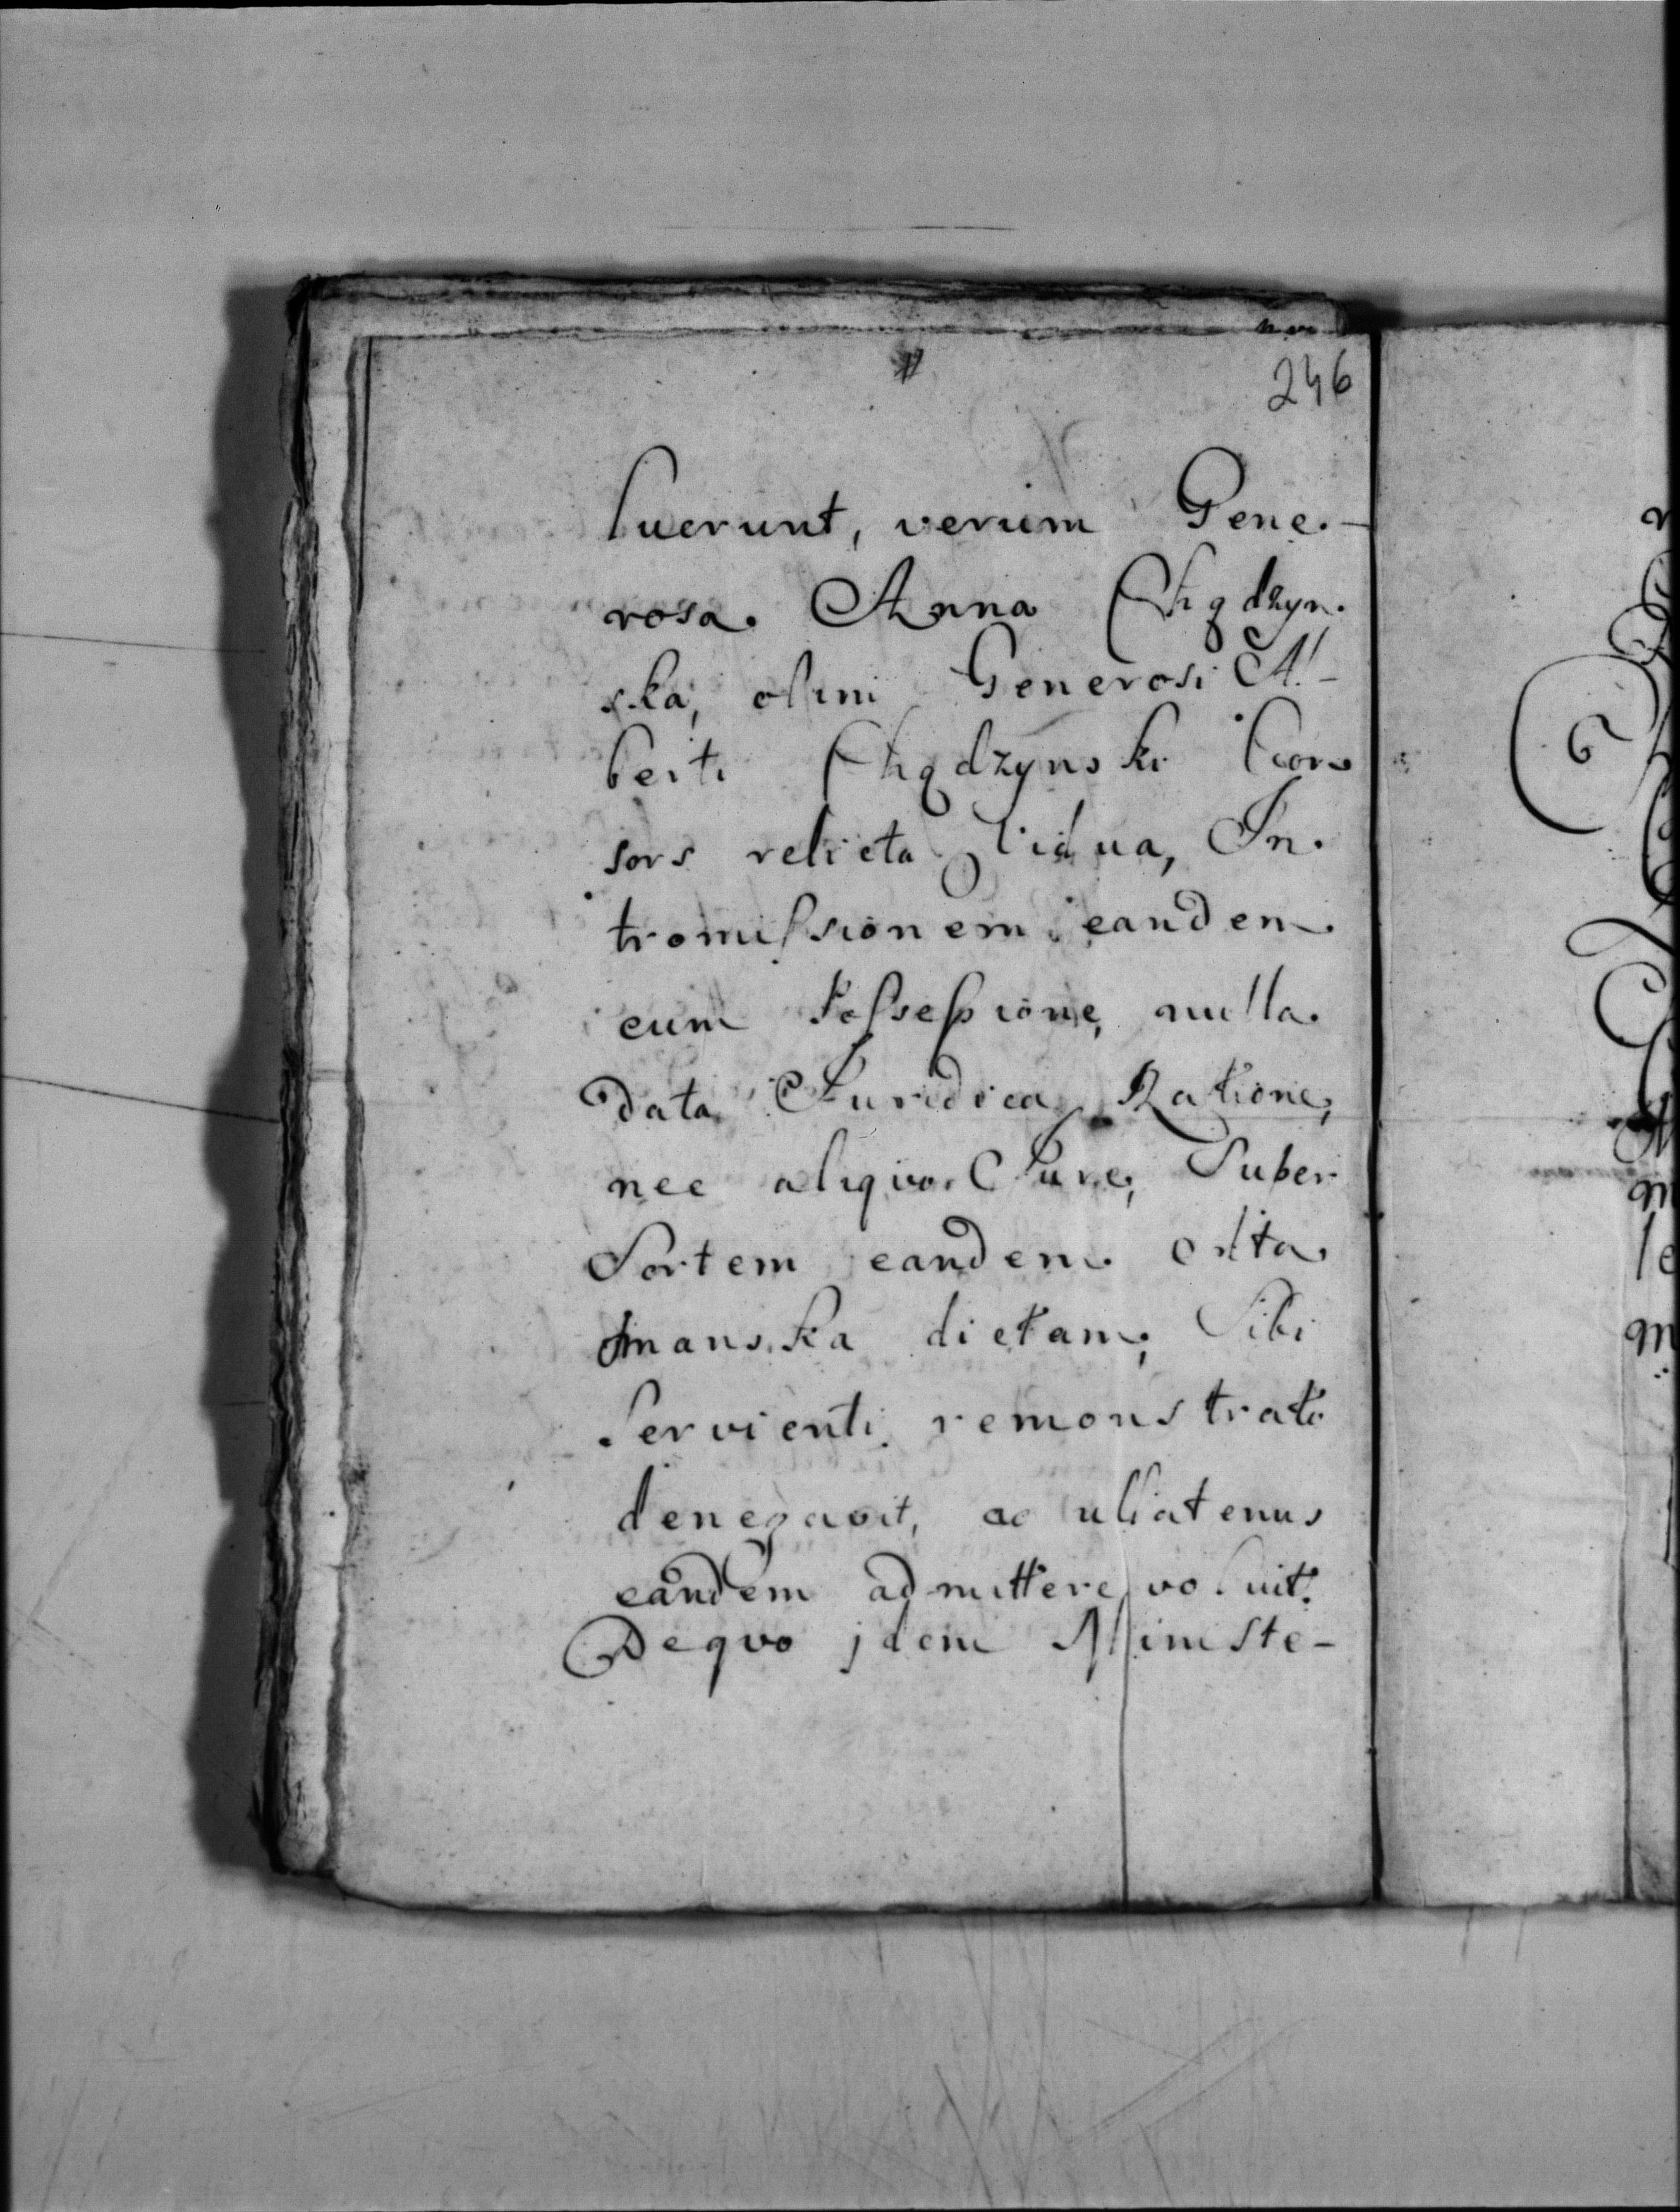 246
luerunt, verum Gene.-
rosa. Anna Chądzyn.
ska, olim Generosi Al-
berti Chądzynski Con
sors relicta Vidua, In.
tromissionem eandem.
cum Possessione, nulla.
data Juridica Ratione,
nec aliquo Jure, Super
Sortem eandem
manska dictam, Sibi
Servienti remonstrato
denegavit, ac ullatenus
eandem admittere voluit.
De quo jdem Ministe-